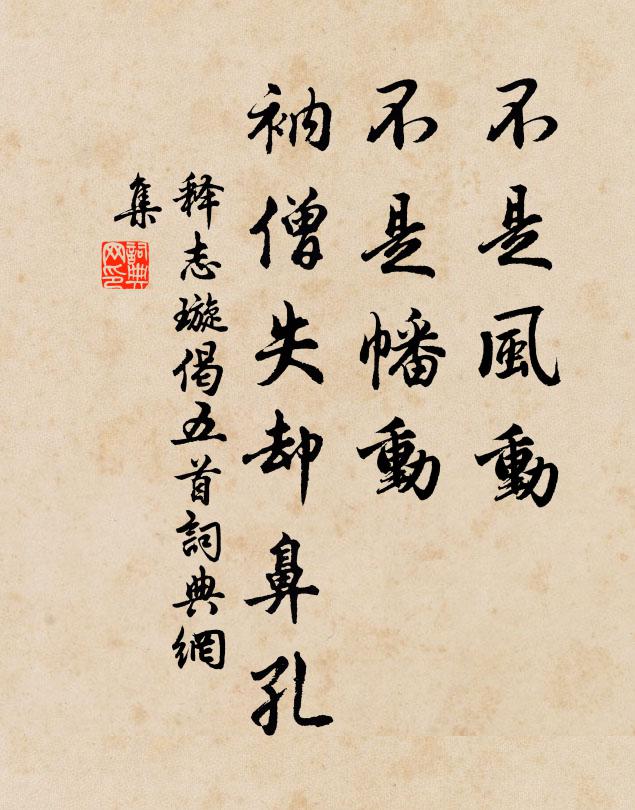 不是風動
不是幡動
衲僧失却鼻孔
释志璇偈五首詞典網
集
詞典
网印